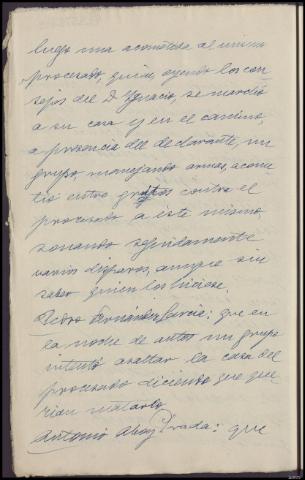 luego una acometida al mismo
procesado, quien, oyendo los con-
sejos del D. Ygnacio, se marchó
a su casa y en el camino,
a presencia del declarante, un
grupo, manejando armas, acome-
tió entre gritos contra el
procesado a este mismo
sonando seguidamente
varios disparos, aunque sin
saber quien los hiciese.
Pedro Fernández García: que en
la noche de autos un grupo
intentó asaltar la casa del
procesado diciendo que que-
rían matarlo
Antonio Prada: que